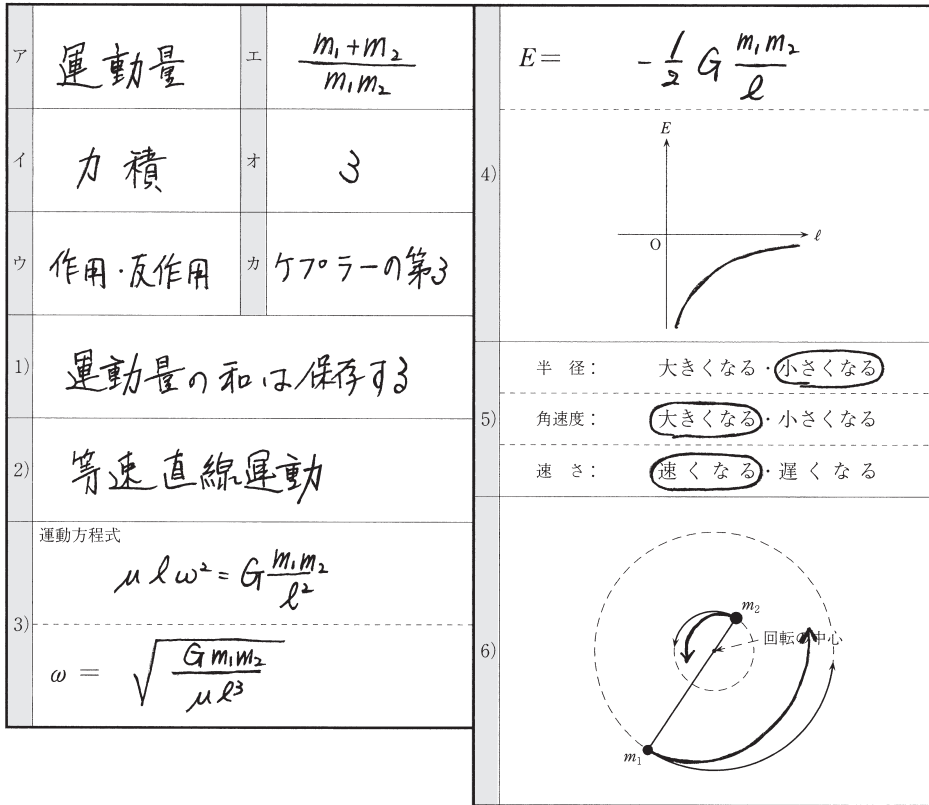 ア 運動量
エ \frac{m_1+m_2}{m_1m_2}
イ 力積
オ 3
ウ 作用・反作用
カ ケプラーの第3
1) 運動量の和は保存する
2) 等速直線運動
3) 運動方程式
μℓω² = G\frac{m_1m_2}{ℓ²}
ω = \sqrt{\frac{Gm_1m_2}{μℓ³}}
4) E = -\frac{1}{2}G\frac{m_1m_2}{ℓ}
E
O
ℓ
5) 半 径: 大きくなる・小さくなる
角速度: 大きくなる・小さくなる
速 さ: 速くなる・遅くなる
6)
m₂
回転の中心
m₁